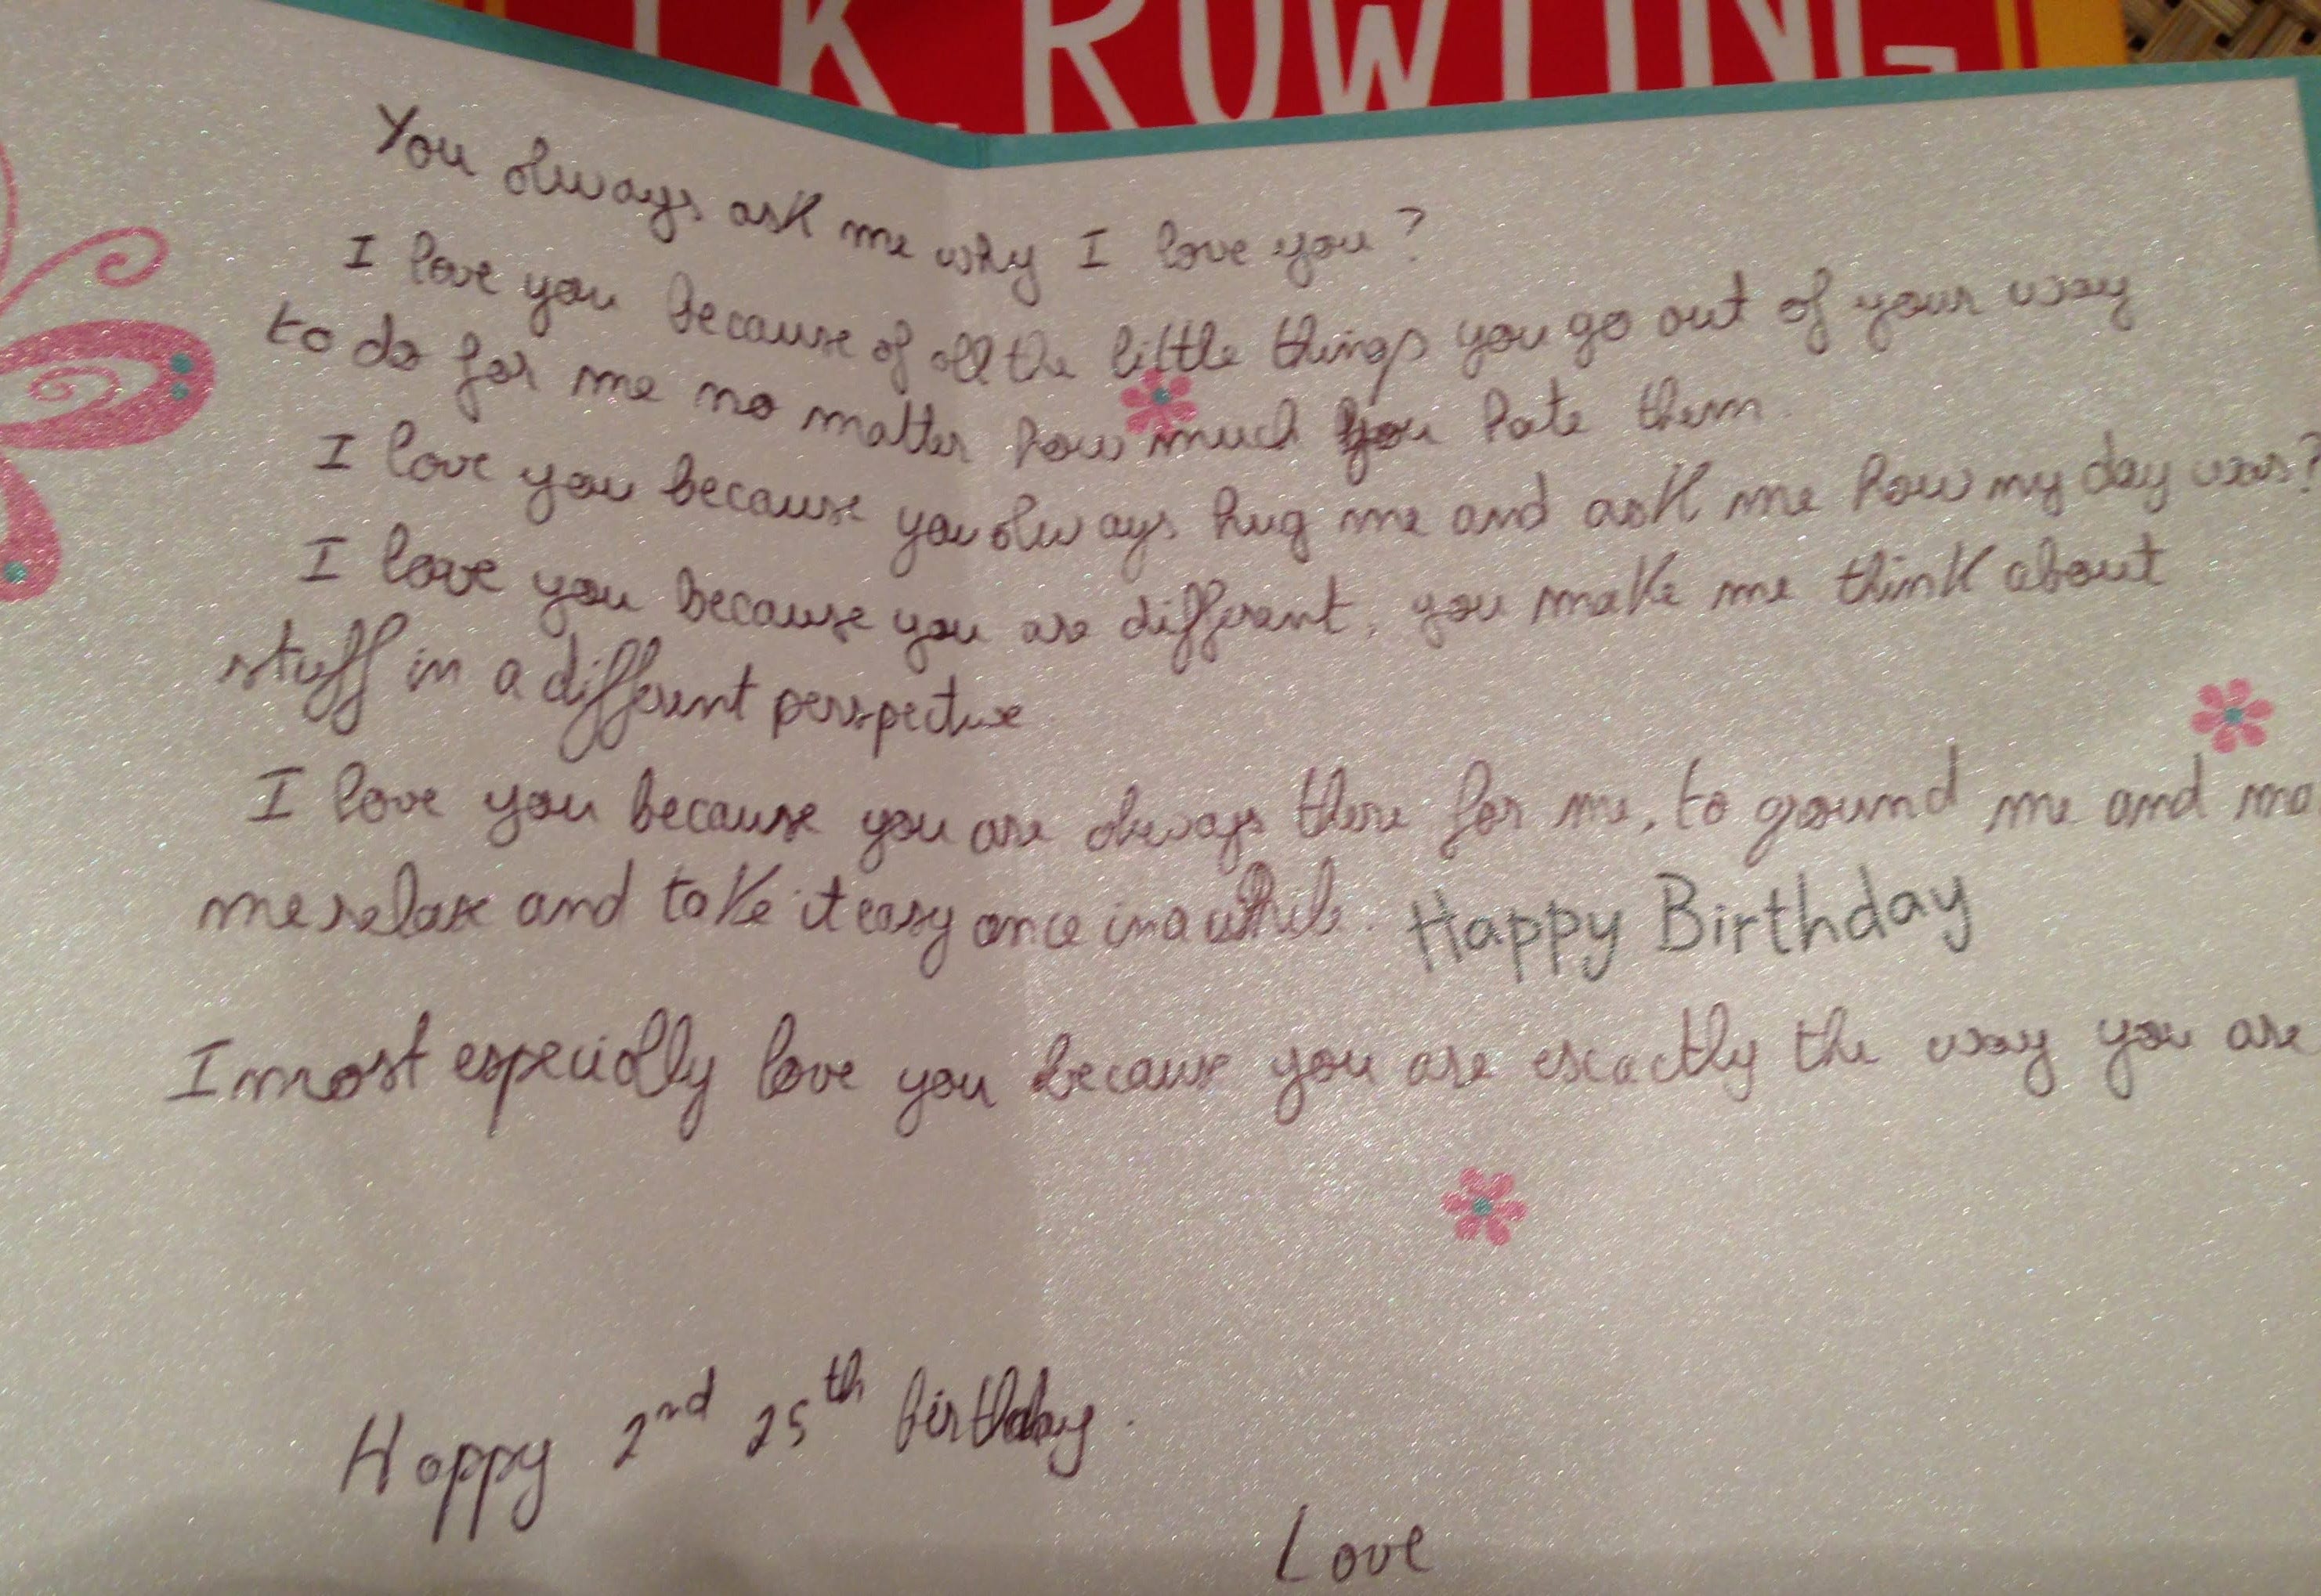 J.K. ROWLING
You always ask me why I love you?
I love you because of all the little things you go out of your way
to do for me no matter how much you hate them.
I love you because you always hug me and ask me how my day was?
I love you because you are different, you make me think about
stuff in a different perspective
I love you because you are always there for me, to ground me and ma
me relax and take it easy once in a while. Happy Birthday
I most especially love you because you are exactly the way you are
Happy 2nd 25th birthday.
Love